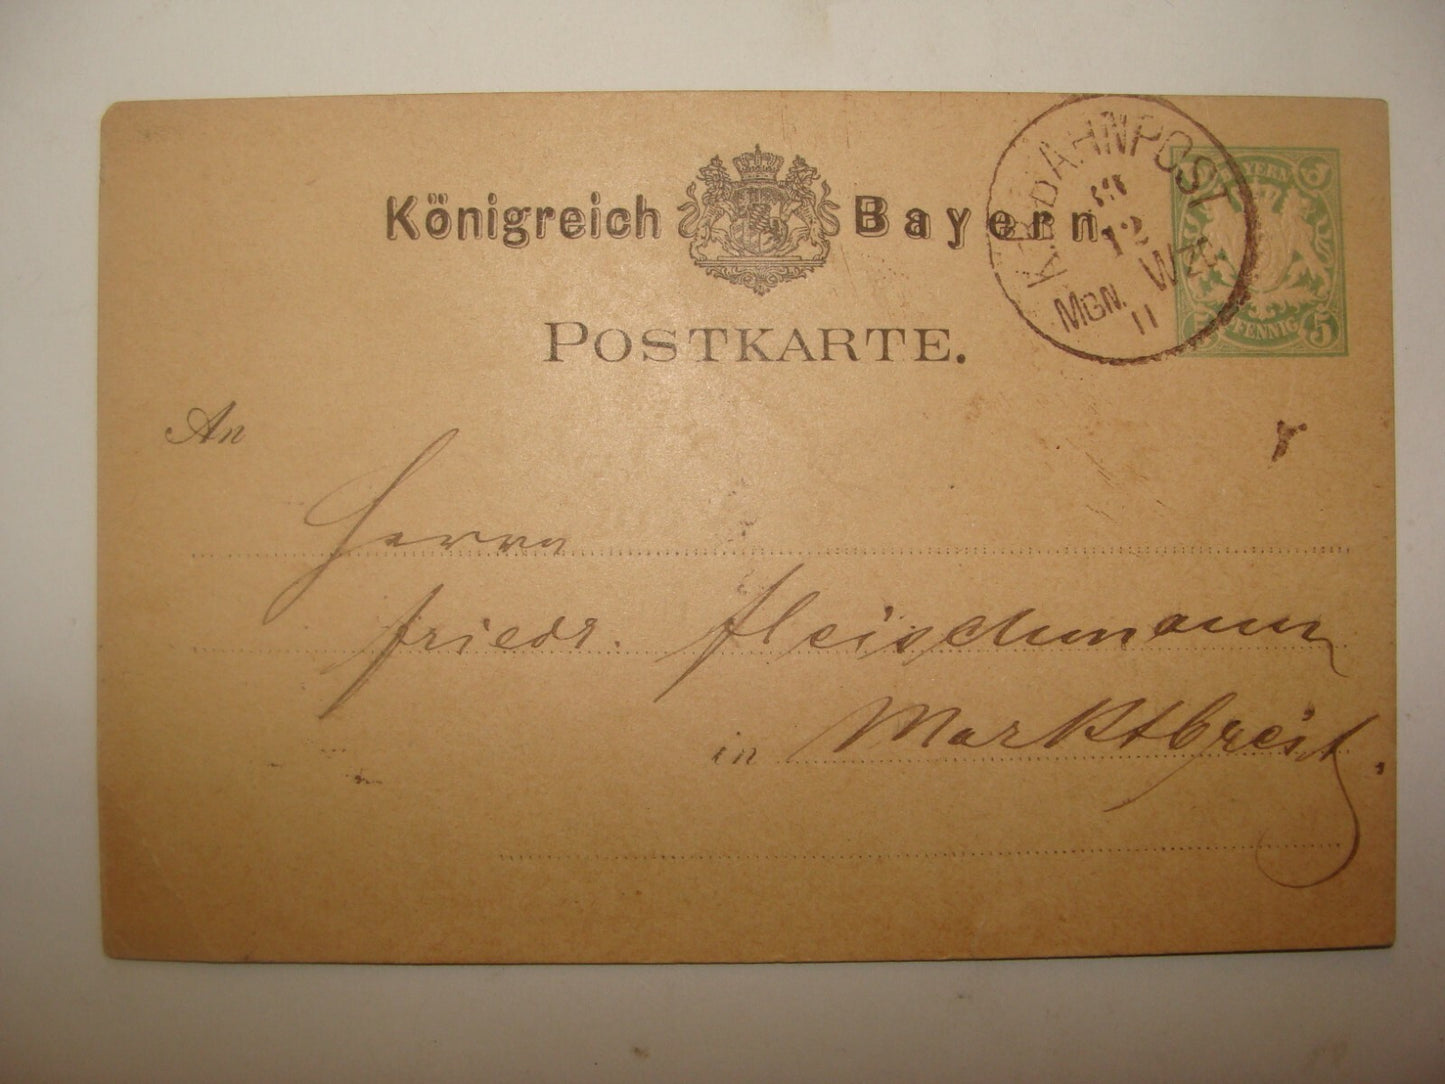 Königreich Bayern
POSTKARTE.
K.B.BAHNPOST
12
MGN. WZ
11
BAYERN
5
PFENNIG 5
An
Herrn
Friedr. Fleischmann
in Marktbreit.